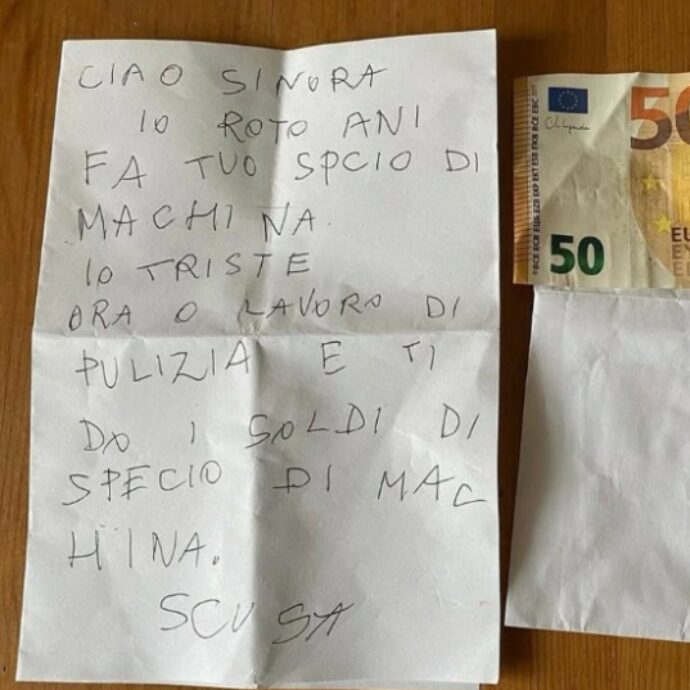 CIAO SINORA
IO ROTO ANI
FA TUO SPCIO DI
MACHINA.
IO TRISTE
ORA O LAVORO DI
PULIZIA E TI
DO I SOLDI DI
SPECIO DI MAC
HINA.
SCUSA
50
50
EU